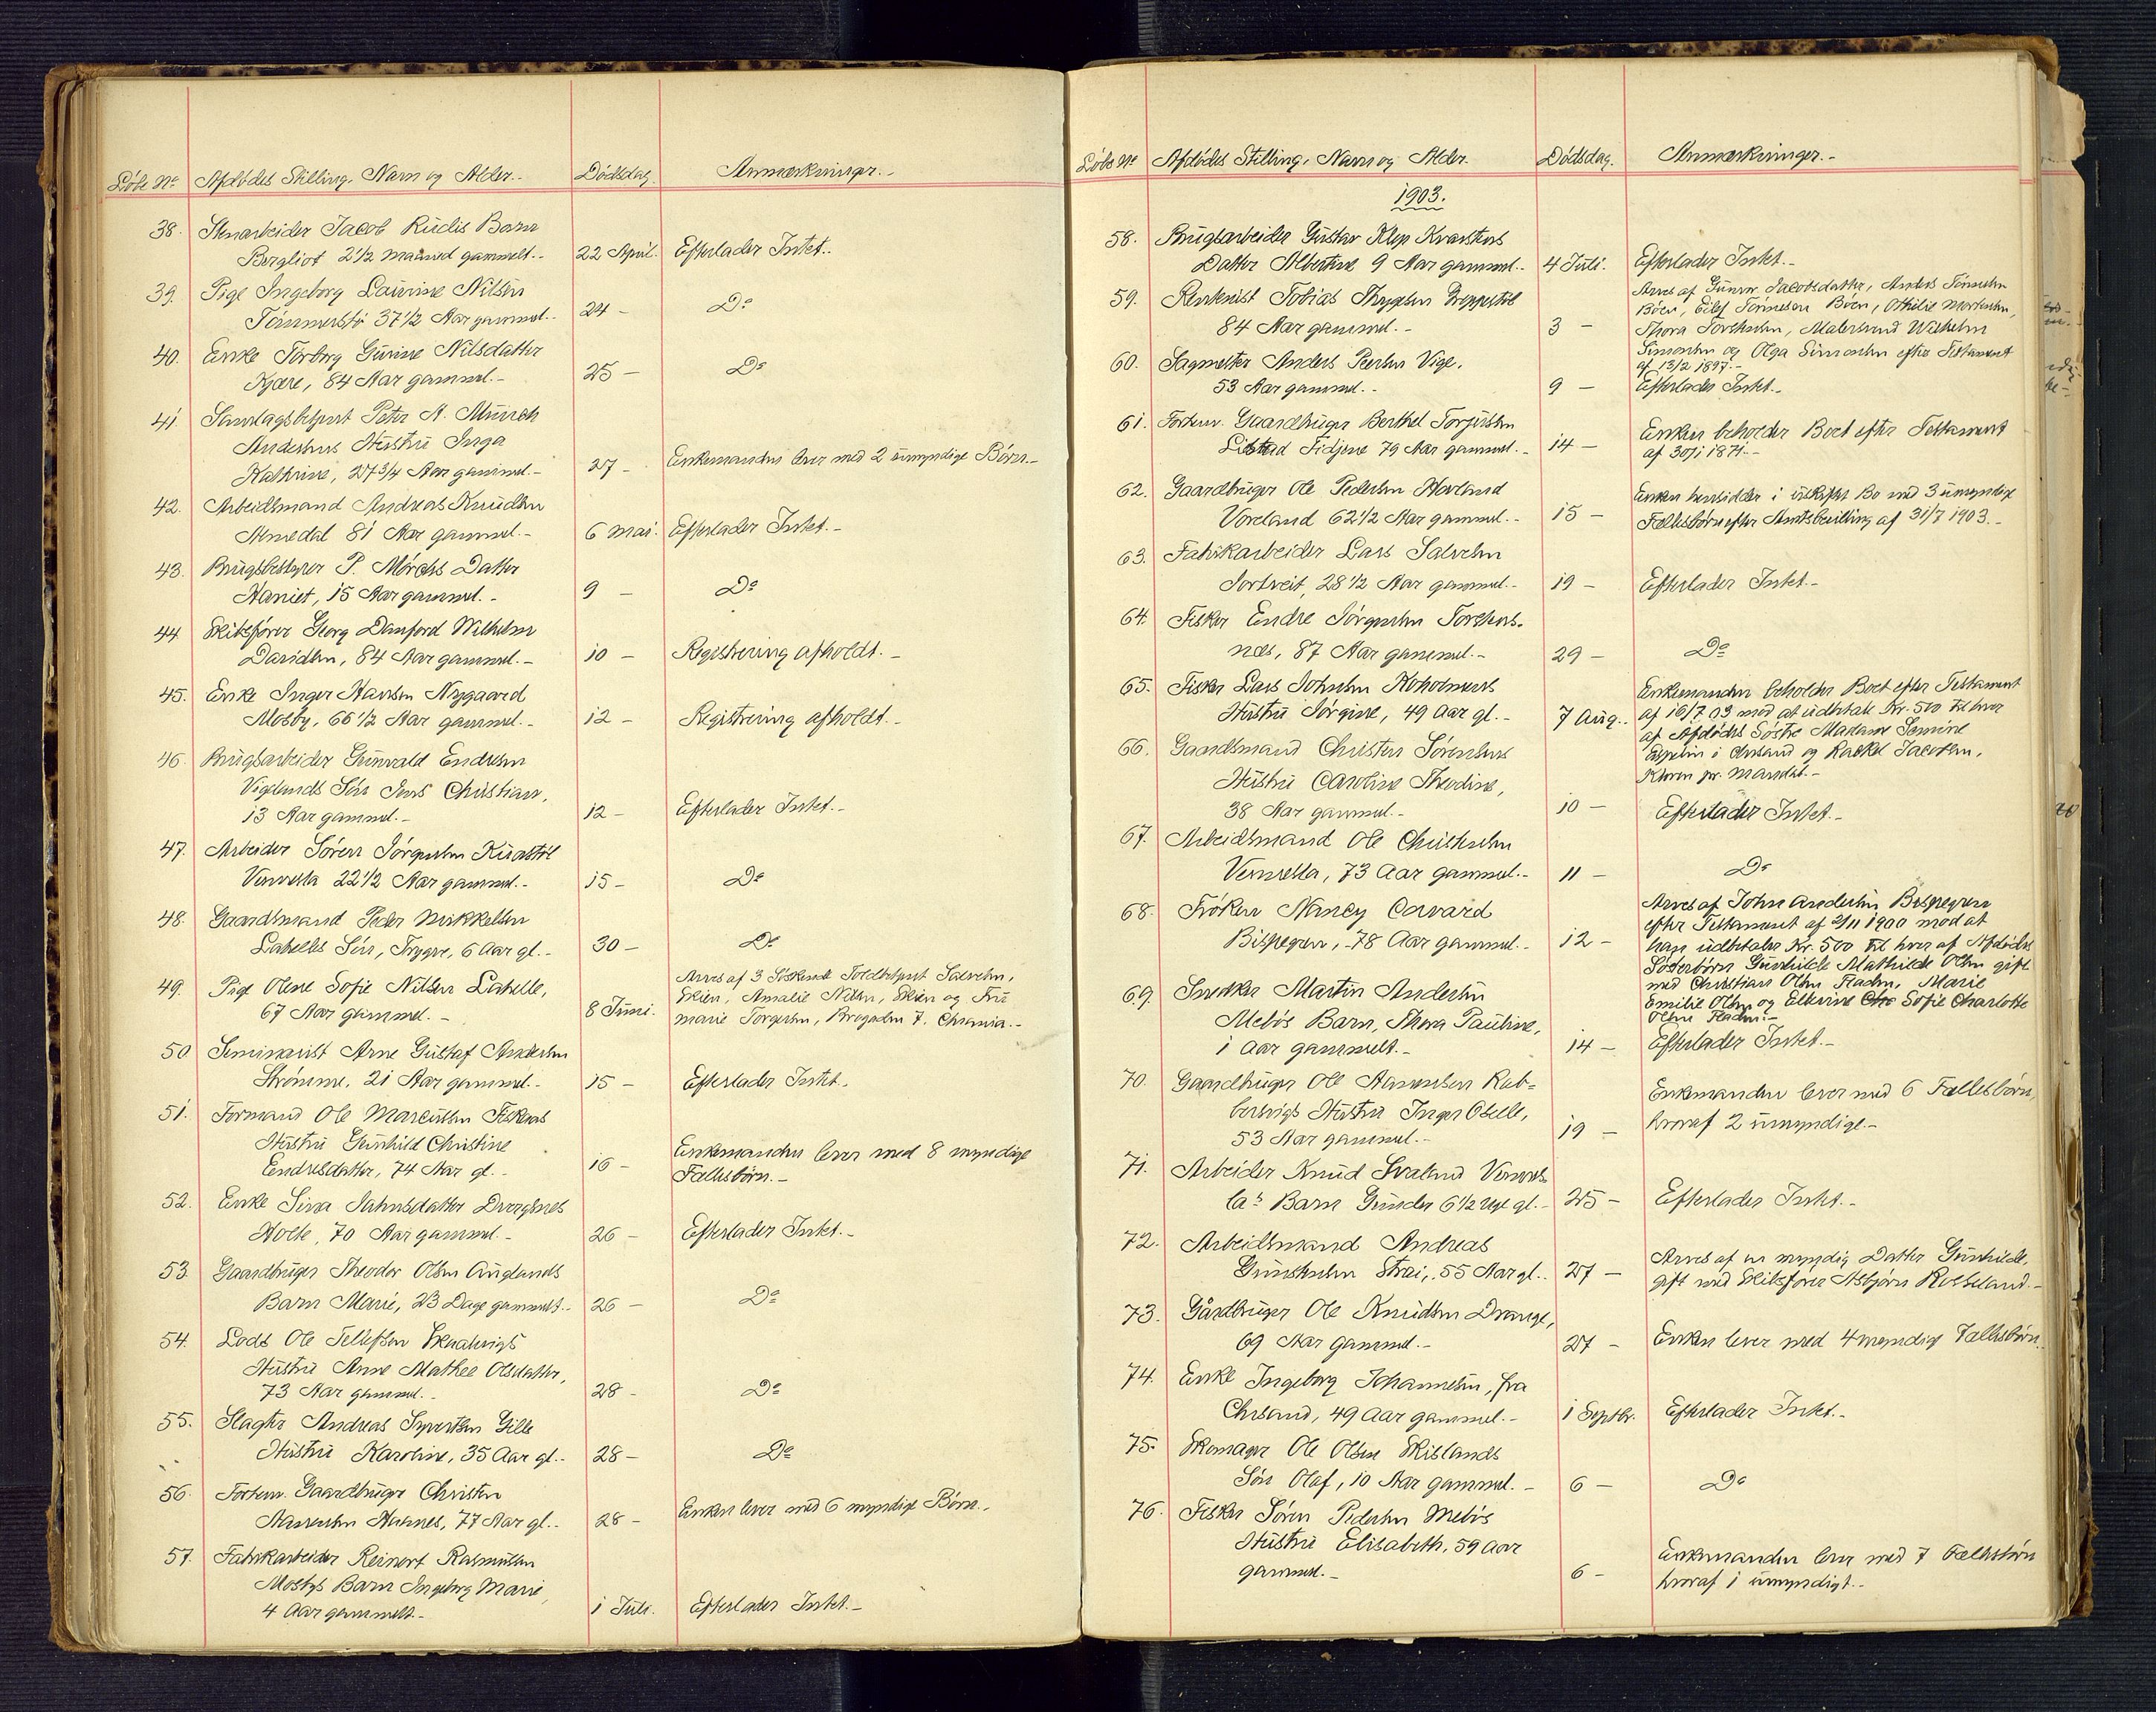 Løbe No Afdødes Stilling, Navn og Alder.- Dødsdag. Anmærkninger.-
38. Stenarbeider Jacob Rudis Barn
Bergliot 2 1/2 Maaned gammelt.- 22 April. Efterlader Intet.-
39. Pige Ingeborg Laurine Nilsen
Tømmerstø 37 1/2 Aar gammel.- 24 - Do
40. Enke Torborg Gurine Nilsdatter
Kjære, 84 Aar gammel.- 25 - Do
41. Samlagsbestyrer Peter A. Münch
Andersens Hustru Inga
Kathrine, 27 3/4 Aar gammel.- 27 - Enkemanden lever med 2 umyndige Børn.-
42. Arbeidsmand Andreas Knudsen
81 Aar gammel.- 6 Mai. Efterlader Intet.-
43. Brugsbestyrer P. Mørchs Datter
Harriet, 15 Aar gammel.- 9 - Do
44. Skibsfører Georg Danford Wilhelm
Davidsen, 84 Aar gammel.- 10 - Registrering afholdt.-
45. Enke Inger Hansen Nygaard
Mosby, 66 1/2 Aar gammel.- 12 - Registrering afholdt.-
46. Brugsarbeider Gunvald Endresen
Vigelands Søn Jens Christian,
13 Aar gammel.- 12 - Efterlader Intet.-
47. Arbeider Søren Jørgensen
Vennesla 22 1/2 Aar gammel.- 15 - Do
48. Gaardsmand Peder Mikkelsen
Lahelles Søn, Trygve, 6 Aar gl.- 30 - Do
49. Pige Olene Sofie Nilsen Lahelle,
67 Aar gammel.- 8 Juni.
Arves af 3 Søskende Toldbetjent Salvesen,
Skien, Amalie Nilsen, Skien og Fru
Marie Torgersen, Brogaden 7, Chrania.-
50. Seminarist Arne Gustaf Andersen
Strømme, 21 Aar gammel.- 15 - Efterlader Intet.
51. Formand Ole Marcussen Fiskaas
Hustru Gunhild Christine
Endresdatter, 74 Aar gl.- 16 - Enkemanden lever med 8 myndige
Fællesbørn.-
52. Enke Sina Jahnsdatter Dvergsnes
Holte, 70 Aar gammel.- 26 - Efterlader Intet.-
53. Gaardbruger Theodor Olsen Auglands
Barn Marie, 23 Dage gammelt.- 26 - Do
54. Lods Ole Tellefsen
Hustru Anne Mathea Olsdatter,
73 Aar gammel.- 28 - Do
55. Slagter Andreas Syvertsen Gille
Hustru Karoline, 35 Aar gl.- 28 - Do
56. Forhenv. Gaardbruger Christen
Aanensen Aasnes, 77 Aar gl.- 28 - Enken lever med 6 myndige Børn.-
57. Fabrikarbeider Reinert Rasmussen
Mosbys Barn Ingeborg Marie,
4 Aar gammelt.- 1 Juli. Efterlader Intet.-
Løbe No Afdødes Stilling, Navn og Alder. Dødsdag. Anmærkninger.-
1903.
58. Brugsarbeider Gustav Klep Kvarstens
Datter Albertine 9 Aar gammel.- 4 Juli. Efterlader Intet.-
59. Tobias Thygesen
84 Aar gammel.- 3 -
Arves af Gunvor Jacobsdatter, Anders Tønnesen
Bøen, Eilef Tønnesen Bøen, Othilie Mortensen,
Thora Torstensen, Malersvend Wilhelm
Simonsen og Olga Simonsen efter Testament
af 13/2 1897.-
60. Sagmester Anders Peersen Vige,
53 Aar gammel.- 9 - Efterlader Intet.-
61. Forhenv. Gaardbruger Berthel Torjussen
Fidjene 79 Aar gammel.- 14 - Enken beholder Boet efter Testament
af 30/1 1871.-
62. Gaardbruger Ole Pedersen Hovland
Voreland 62 1/2 Aar gammel.- 15 - Enken hensidder i uskiftet Bo med 3 umyndige
Fællesbørn efter Amtsbevilling af 31/7 1903.-
63. Fabrikarbeider Lars Salvesen
Jortveit, 28 1/2 Aar gammel.- 19 - Efterlader Intet.-
64. Fisker Endre Jørgensen
nes, 87 Aar gammel.- 29 - Do
65. Fisker Lars Johnsen Koholmens
Hustru Jørgine, 49 Aar gl.- 7 Aug.
Enkemanden beholder Boet efter Testament
af 16/7 03 mod at udbetale Kr. 500 til hver
af Afdødes Søstre Madame
i Chrsand og Rachel Jacobsen,
pr. Mandal.-
66. Gaardsmand Christen Sørensens
Hustru Caroline Theodine,
38 Aar gammel.- 10 - Efterlader Intet.-
67. Arbeidsmand Ole Christensen
Vennesla, 73 Aar gammel.- 11 - Do
68. Frøken Nancy Covard
Bispegren, 78 Aar gammel.- 12 -
Arves af John Andersen Bispegren
efter Testament af 2/11 1900 mod at
han udbetaler Kr. 500 til hver af Afdødes
Søsterbørn Gunhilde Mathilde Olsen gift
med Christian Olsen Fladen, Marie
Emilie Olsen og Elevine Sofie Charlotte
Olsen Fladen.-
69. Snedker Martin Andersen
Mebøs Barn, Thora Pauline,
1 Aar gammelt.- 14 - Efterlader Intet.-
70. Gaardbruger Ole Aanensen Rab-
bersvigs Hustru Inger Oselle,
53 Aar gammel.- 19 - Enkemanden lever med 6 Fællesbørn,
hvoraf 2 umyndige.-
71. Arbeider Knud Svaland Vennes-
la's Barn Gunder 6 1/2 Uge gl.- 25 - Efterlader Intet.-
72. Arbeidsmand Andreas
Gunstensen Strai, 55 Aar gl.- 27 - Arves af en myndig Datter Gunhilde,
gift med Skibsfører Asbjørn Rosseland.-
73. Gårdbruger Ole Knudsen Drange,
69 Aar gammel.- 27 - Enken lever med 4 myndige Fællesbørn.
74. Enke Ingeborg Johannesen, fra
Chrsand, 49 Aar gammel.- 1 Septbr. Efterlader Intet.-
75. Skomager Ole Olsen Skislands
Søn Olaf, 10 Aar gammel.- 6 - Do
76. Fisker Søren Pedersen Mebøs
Hustru Elisabeth, 59 Aar
gammel.- 6 - Enkemanden lever med 7 Fællesbørn
hvoraf 1 umyndigt.-